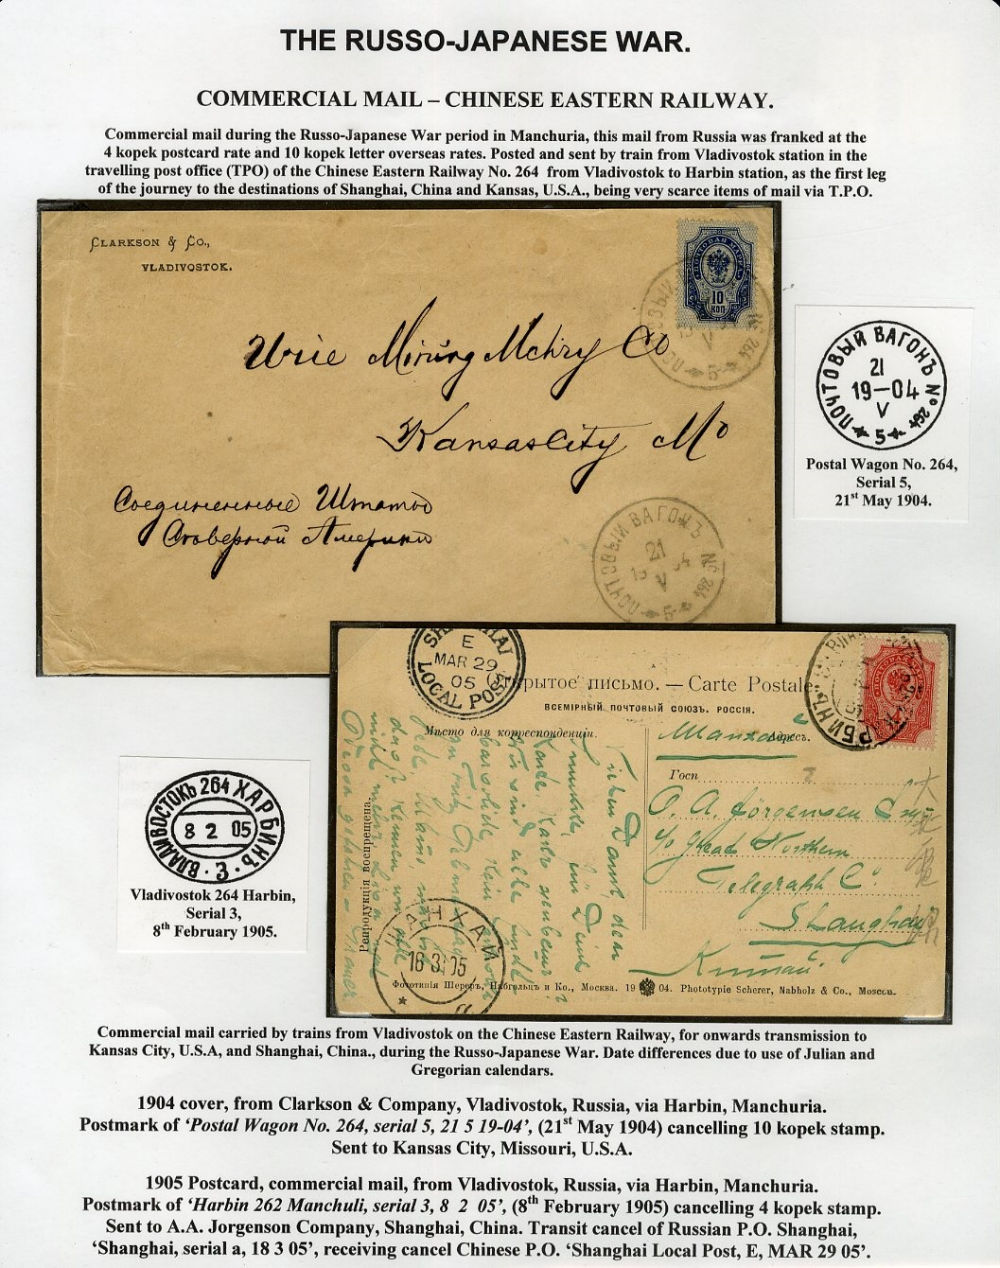 THE RUSSO-JAPANESE WAR.
COMMERCIAL MAIL – CHINESE EASTERN RAILWAY.
Commercial mail during the Russo-Japanese War period in Manchuria, this mail from Russia was franked at the
4 kopek postcard rate and 10 kopek letter overseas rates. Posted and sent by train from Vladivostok station in the
travelling post office (TPO) of the Chinese Eastern Railway No. 264 from Vladivostok to Harbin station, as the first leg
of the journey to the destinations of Shanghai, China and Kansas, U.S.A., being very scarce items of mail via T.P.O.
CLARKSON & CO.,
VLADIVOSTOK.
10
КОП
Urie Mining Mchry Co
Kansas City Mo
Соединенные Штатов
Северной Америки
ПОЧТОВЫЙ ВАГОНЪ № 264
21
V
5
ПОЧТОВЫЙ ВАГОНЪ № 264
21
19–04
V
5
Postal Wagon No. 264,
Serial 5,
21st May 1904.
SHANGHAI
E
MAR 29
05
LOCAL POST
Открытое письмо. — Carte Postale
ВСЕМІРНЫЙ ПОЧТОВЫЙ СОЮЗЪ. РОССІЯ.
Мѣсто для корреспонденціи.
Адресъ.
Шанхай
Госп
O. A. Jörgensen
c/o Great Northern
Telegraph Co.
Shanghai
Китай
Репродукція воспрещена.
ШАНХАЙ
18 3 05
Фототипія Шереръ, Набгольцъ и Ко., Москва. 1904. Phototypie Scherer, Nabholz & Co., Moscou.
ВЛАДИВОСТОКЪ 264 ХАРБИНЪ
8 2 05
3
Vladivostok 264 Harbin,
Serial 3,
8th February 1905.
Commercial mail carried by trains from Vladivostok on the Chinese Eastern Railway, for onwards transmission to
Kansas City, U.S.A, and Shanghai, China., during the Russo-Japanese War. Date differences due to use of Julian and
Gregorian calendars.
1904 cover, from Clarkson & Company, Vladivostok, Russia, via Harbin, Manchuria.
Postmark of ‘Postal Wagon No. 264, serial 5, 21 5 19-04’, (21st May 1904) cancelling 10 kopek stamp.
Sent to Kansas City, Missouri, U.S.A.
1905 Postcard, commercial mail, from Vladivostok, Russia, via Harbin, Manchuria.
Postmark of ‘Harbin 262 Manchuli, serial 3, 8 2 05’, (8th February 1905) cancelling 4 kopek stamp.
Sent to A.A. Jorgenson Company, Shanghai, China. Transit cancel of Russian P.O. Shanghai,
‘Shanghai, serial a, 18 3 05’, receiving cancel Chinese P.O. ‘Shanghai Local Post, E, MAR 29 05’.